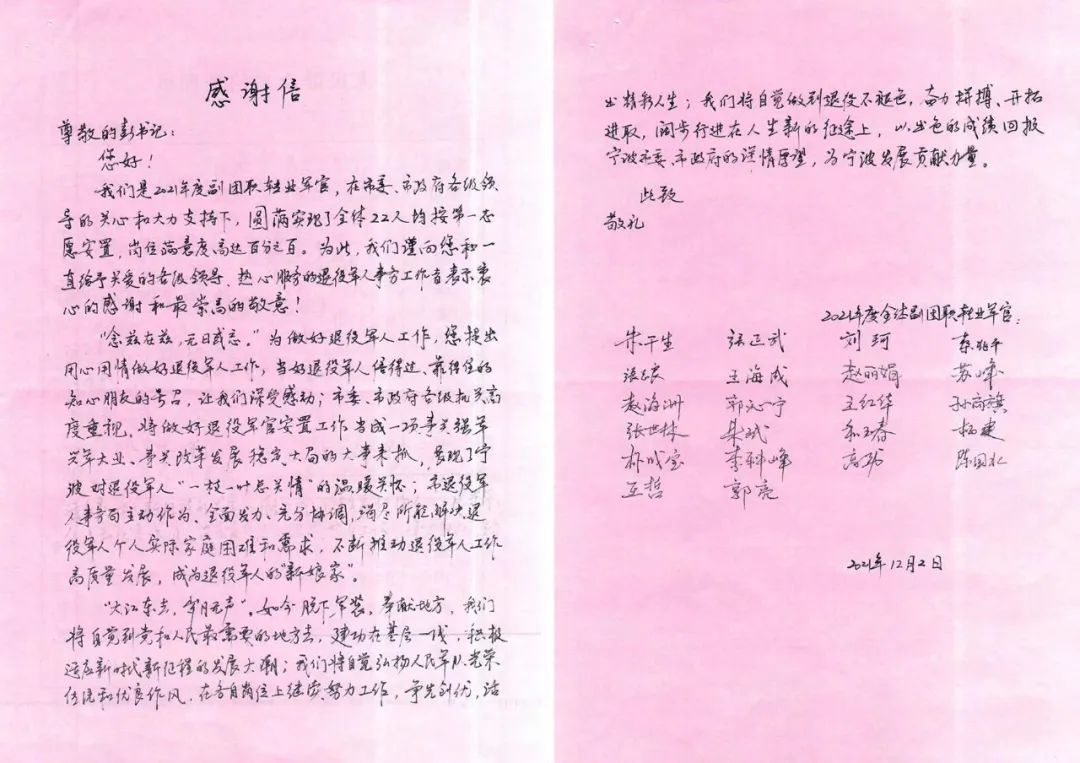 感谢信
尊敬的彭书记：
您好！
我们是2021年度副团职转业军官，在市委、市政府各级领
导的关心和大力支持下，圆满实现了全体22人均按第一志
愿安置，岗位满意度高达百分之百。为此，我们谨向您和一
直给予关爱的各级领导、热心服务的退役军人事务工作者表示衷
心的感谢和最崇高的敬意！
“念兹在兹，无日或忘。”为做好退役军人工作，您提出
用心用情做好退役军人工作，当好退役军人信得过、靠得住的
知心朋友的号召，让我们深受感动；市委、市政府各级机关高
度重视，将做好退役军官安置工作当成一项事关强军
兴军大业、事关改革发展稳定大局的大事来抓，呈现了宁
波对退役军人“一枝一叶总关情”的温暖关怀；市退役军
人事务局主动作为、全面发力、充分协调，竭尽所能解决退
役军人个人实际家庭困难和需求，不断推动退役军人工作
高质量发展，成为退役军人的“新娘家”。
“大江东去，岁月无声”。如今脱下军装，奉献地方，我们
将自觉到党和人民最需要的地方去，建功在基层一线，积极
适应新时代新征程的发展大潮；我们将自觉弘扬人民军队光荣
传统和优良作风，在各自岗位上继续努力工作，争先创优，活
出精彩人生；我们将自觉做到退役不褪色，奋力拼搏、开拓
进取，阔步行进在人生新的征途上，以出色的成绩回报
宁波市委、市政府的深情厚望，为宁波发展贡献力量。
此致
敬礼
2021年度全体副团职转业军官：
朱干生 张正武 刘珂
王海成 赵丽娟 苏峰
赵海洲 郭沁宁 王红华
张世林 杨建
朴成宝 李科峰 高玮 陈国红
王哲 郭亮
2021年12月2日